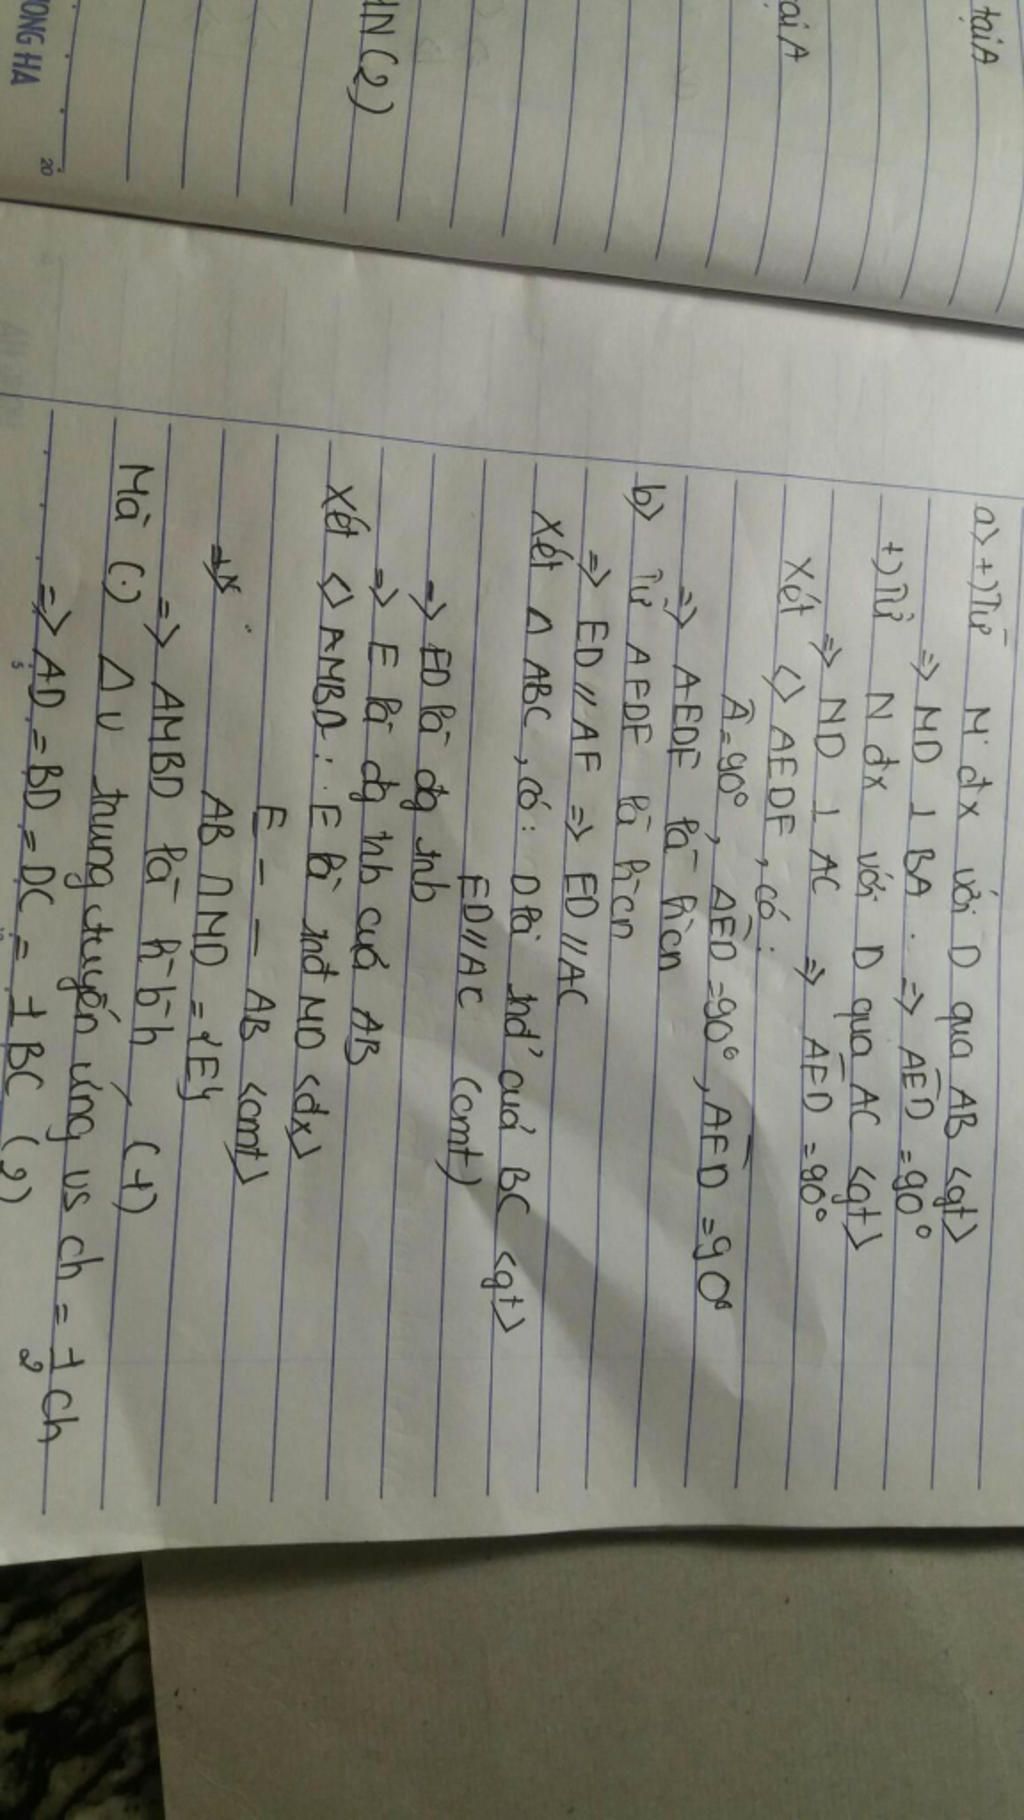 tại A
ại A
HN (2)
ONG HA
20
a) +) Từ M đx với D qua AB <gt>
=> MD ⊥ BA. => AED = 90°
+) Từ N đx với D qua AC <gt>
=> ND ⊥ AC => AFD = 90°
Xét <> AEDF, có:
A = 90°, AED = 90°, AFD = 90°
=> AEDF là hcn
b) Từ AEDF là hcn
=> ED // AF => ED // AC
Xét Δ ABC, có: D là tnđ' của BC <gt>
ED // AC (cmt)
=> ED là đg tnb
=> E là đg tnh của AB
Xét <> AMBD: E là tnđ MD <đx>
E - - AB <cmt>
AB ∩ MD = {E}
=> AMBD là h-b-h, (1)
Mà (.) Δ v trung tuyến ứng vs ch = 1/2 ch
=> AD = BD = DC = 1 BC (2)